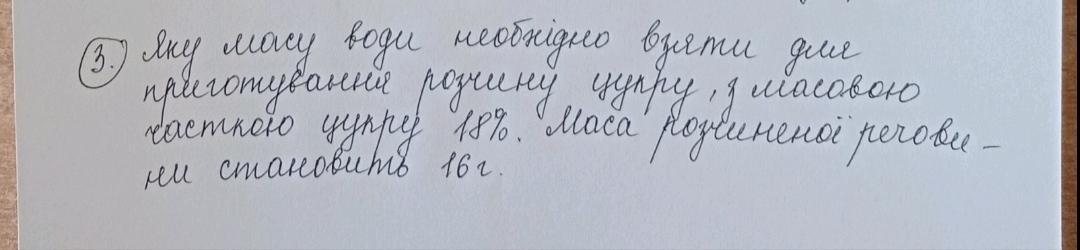 3. Яку масу води необхідно взяти для
приготування розчину цукру, з масовою
часткою цукру 18%. Маса розчиненої речови-
ни становить 16г.